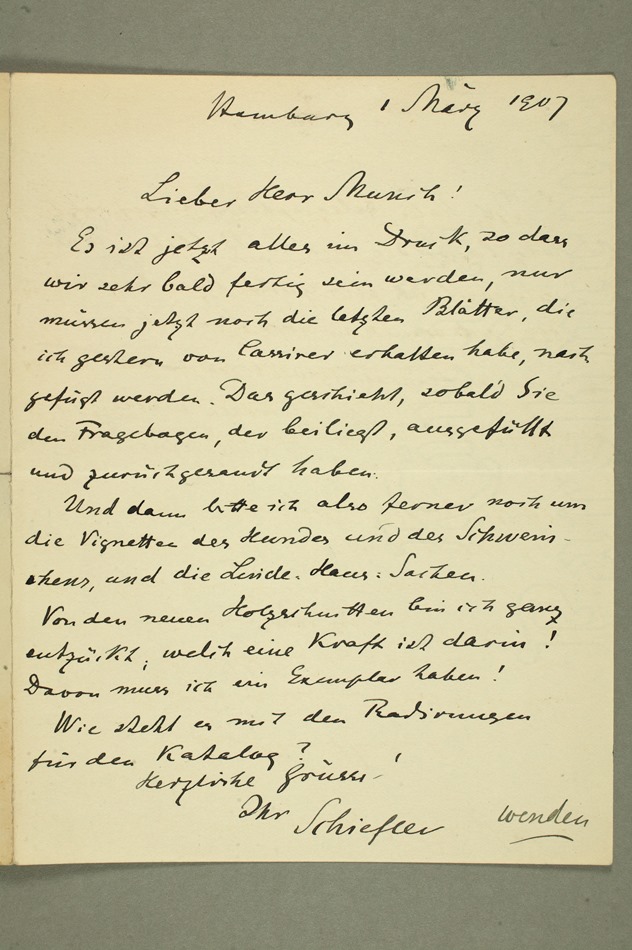 Hamburg 1 März 1907
Lieber Herr Munch!
Es ist jetzt alles im Druck, so dass
wir sehr bald fertig sein werden, nur
müssen jetzt noch die letzten Blätter, die
ich gestern von Cassirer erhalten habe, nach
gefügt werden. Das geschieht, sobald Sie
den Fragebogen, der beiliegt, ausgefüllt
und zurückgesandt haben.
Und dann bitte ich also ferner noch um
die Vignetten des Hundes und des Schwein-
chens, und die Linde-Haus-Sachen.
Von den neuen Holzschnitten bin ich ganz
entzückt; welch eine Kraft ist darin!
Davon muss ich ein Exemplar haben!
Wie steht es mit den Radirungen
für den Katalog?
Herzliche Grüsse!
Ihr
Schiefler
wenden